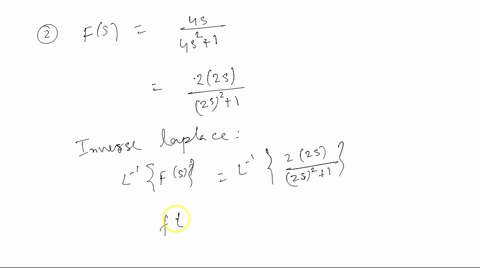 ② F(s) = 4s / 4s²+1
= ·2(2s) / (2s)²+1
Inverse laplace:
L⁻¹{F(s)} = L⁻¹{2(2s) / (2s)²+1}
f t